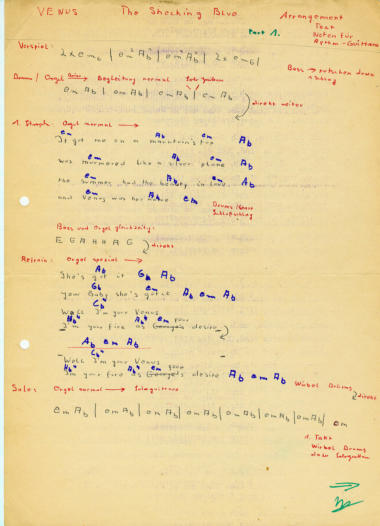 VENUS The Shocking Blue Arrangement
Text
Part 1. Noten für
Rythm-Guittare
Vorspiel: 2x em6 | em² Ab | em Ab | 2x em6 |
Bass → rutschen down
Drums / Orgel Begleitung normal
em Ab | em Ab | em Ab | em Ab
direkt weiter
1. Strophe: Orgel normal →
em Ab em Ab
It got me on a mountain's top
em Ab em Ab
was murmered like a silver plane
em Ab em Ab
the summer had the beauty in love
em Ab em
and Venus was her name
Drums / Bass
Schlußschlag
Bass und Orgel gleichzeitig:
E G A H H A G direkt
Refrain: Orgel spezial →
Ab Gb Ab
She's got it
Gb Ab em Ab
yeah Baby she's got it
Cb
Well I'm your Venus
Hb Ab em
I'm your fire as desire
Ab em Ab
Cb
-Well I'm your Venus
Hb Ab em
I'm your fire as desire Ab em Ab Wirbel Drums
direkt
Solo: Orgel normal → Sologuittare
em Ab | em Ab | em Ab | em Ab | em Ab | em Ab | em Ab | em
1. Takt
Wirbel Drums
dann Sologuittare